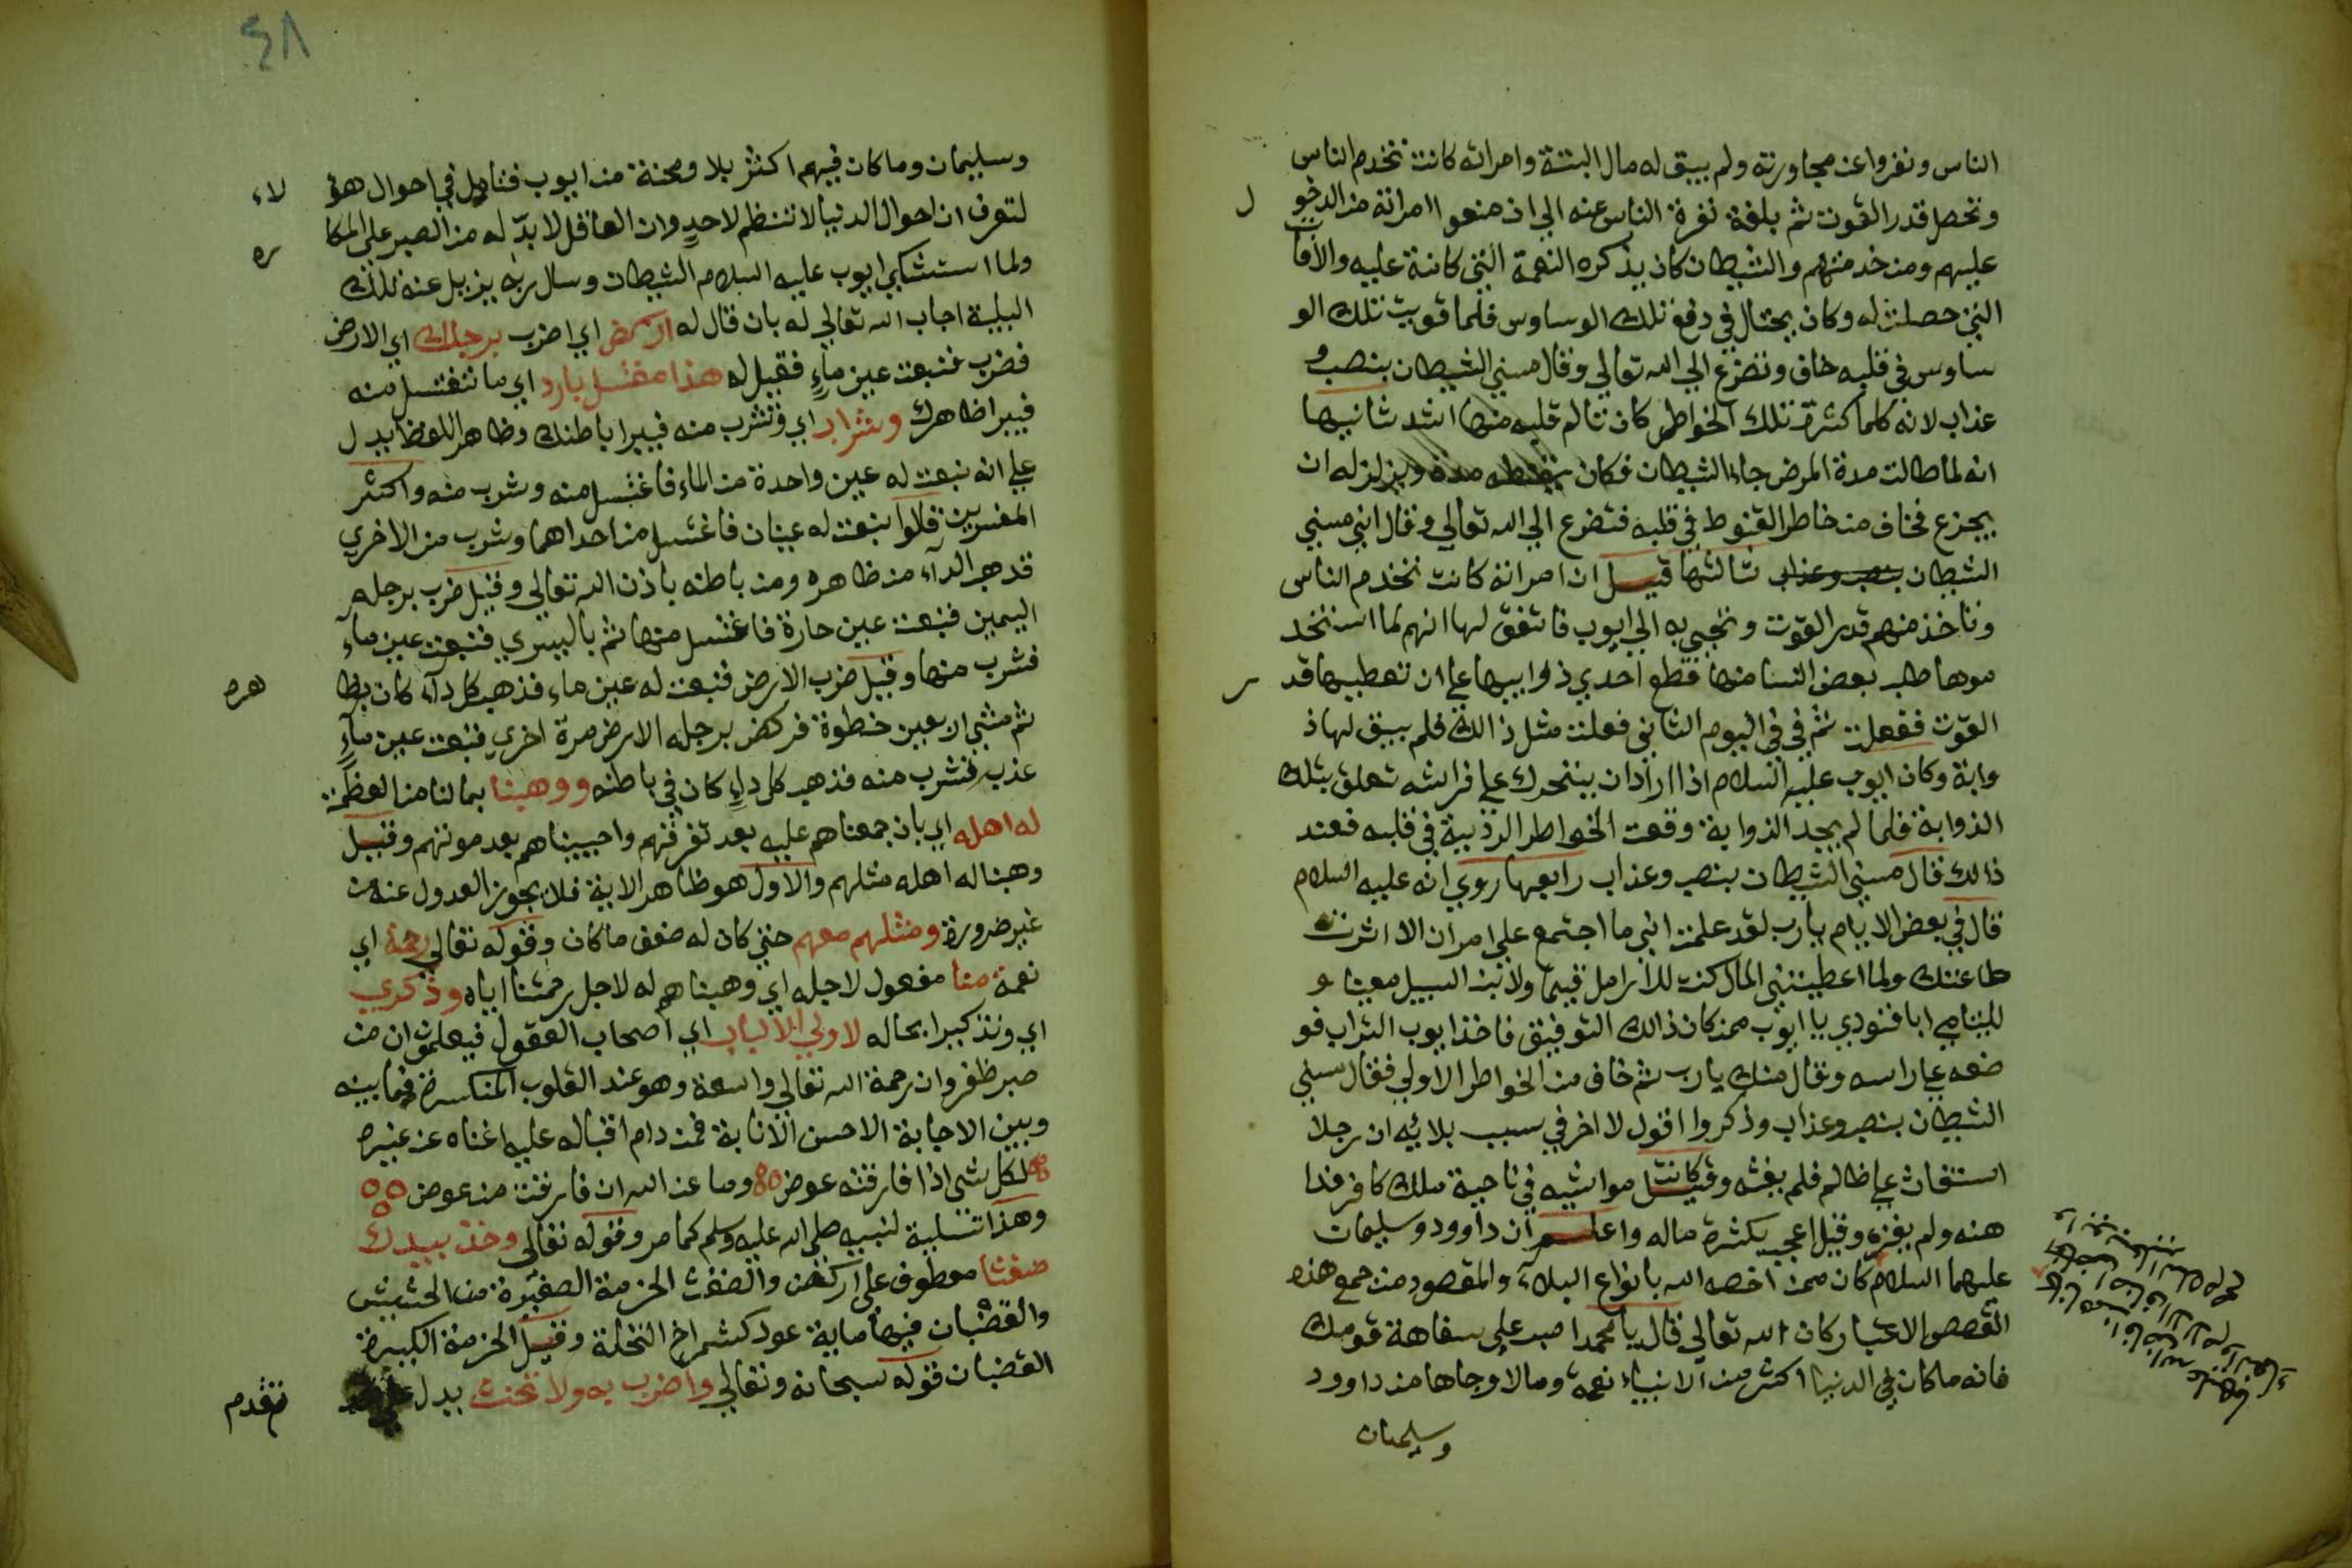 الناس ونفروا عن مجاورته ولم يبق له مال البتة وامراته كانت تخدم الناس
وتحصل قدر القوت ثم بلغة نفرة الناس عنه الي ان منعوا امراته من الدخو
ل
عليهم ومن خدمتهم والشيطان كان يذكره النعمة التي كانة عليه والآفات
التي حصلت له وكان يحتال في دفع تلك الوساوس فلما قويت تلك الو
ساوس في قلبه خاف وتضرع الي الله تعالي وقال مسني الشيطان بنصب و
عذاب لانه كلما كثرة تلك الخواطر كان تالم قلبه منها اشد ثانيها
انه لما طالت مدة المرض جاء الشيطان فكان يقنطه مدة ويزلزله ان
يجزع فخاف من خاطر القنوط في قلبه فتضرع الي الله تعالي وقال اني مسني
الشيطان بنصب وعذاب ثالثها قيل ان امراته كانت تخدم الناس
وتاخذ منهم قدر القوت وتجي به الي ايوب فاتفق لها انهم لما استخد
موها طلب بعض النسا منها قطع احدي ذوابيها علي ان تعطيها قد
ر
القوت ففعلت ثم في في اليوم الثاني فعلت مثل ذالك فلم يبق لها ذ
وابة وكان ايوب عليه السلام اذا اراد ان يتحرك علي فراشه تعلق بتلك
الذوابة فلما لم يجد الذوابة وقعت الخواطر الرذية في قلبه فعند
ذالك قال مسني الشيطان بنصب وعذاب رابعها روي انه عليه السلام
قال في بعض الايام يارب لقد علمت اني ما اجتمع علي امران الا اثرت
طاعتك ولما اعطيتني المال كنت للارامل قيما ولابن السبيل معينا و
لليتامي ابا فنودي يا ايوب ممن كان ذالك التوفيق فاخذ ايوب التراب فو
ضعه علي راسه وقال منك يارب ثم خاف من الخواطر الاولي فقال مسني
الشيطان بنصب وعذاب وذكروا اقول لا اخر في سبب بلائه ان رجلا
استغاث علي ظالم فلم يغثه وقيل كانت مواشيه في ناحية ملك كافر فدا
هنه ولم يغزه وقيل اعجب بكثرة ماله واعلم ان داوود وسليمان
عليهما السلام كان ممن اخصه الله بانواع البلاء والمقصود من جمع هذه
القصص الاعتبار كان الله تعالي قال يا محمد اصبر علي سفاهة قومك
فانه ما كان في الدنيا اكثر من الانبياء نعمة ومالا وجاها من داوود
وسليمان
٤٨
وسليمان وما كان فيهم اكثر بلا ومحنة من ايوب فتامل في احوال هؤ
لاء
لتعرف ان احوال الدنيا لا تنتظم لاحدٍ وان العاقل لا بدّ له من الصبر علي المكا
ره
ولما استشكي ايوب عليه السلام الشيطان وسال ربه يزيل عنه تلك
البلية اجاب الله تعالي له بان قال له اركض اي اضرب برجلك اي الارض
فضرب فنبعت عين ماءٍ فقيل له هذا مغتسل بارد اي ما تغتسل منه
فيبرا ظاهرك وشراب اي وتشرب منه فيبرا باطنك وظاهر اللفظ يدل
علي انه نبعت له عين واحدة من الماء فاغتسل منه وشرب منه واكثر
المفسرين قالوا نبعت له عينان فاغتسل من احداهما وشرب من الاخري
قدهب الداء من ظاهره ومن باطنه باذن الله تعالي وقيل ضرب برجله
اليمين فنبعت عين حارة فاغتسل منها ثم باليسري فنبعت عين ماء
فشرب منها وقيل ضرب الارض فنبعت له عين ماء فذهب كل داء كان بظا
هره
ثم مشي اربعين خطوة فركض برجله الارض مرة اخري فنبعت عين ماءٍ
عذب فشرب منه فذهب كل داءٍ كان في باطنه ووهبنا بما لنا من العظمة
له اهله اي بان جمعناهم عليه بعد تفرقهم واحييناهم بعد موتهم وقيل
وهبنا له اهله مثلهم والاول هو ظاهر الاية فلا يجوز العدول عنه من
غير ضرورة ومثلهم معهم حتي كان له ضعف ما كان وقوله تعالي رحمة اي
نعمة منا مفعول لاجله اي وهبناهم له لاجل رحمتنا اياه وذكري
اي وتذكيرا بحاله لاولي الالباب اي اصحاب العقول فيعلمون ان من
صبر ظفر وان رحمة الله تعالي واسعة وهو عند القلوب المنكسرة فما بينه
وبين الاجابة الا حسن الانابة فمن دام اقباله عليه اغناه عن غيره
لكل شي اذا فارقته عوض وما عن الله ان فارقت من عوض
وهذا تسلية لنبيه صلي الله عليه وسلم كما مر وقوله تعالي وخذ بيدك
ضغثا معطوف علي اركض والضغث الحزمة الصغيرة من الحشيش
والقضبان فيها ماية عود كشمراخ النخلة وقيل الحزمة الكبيرة
القضبان قوله سبحانه وتعالي واضرب به ولا تحنث يدل علي
تقدم